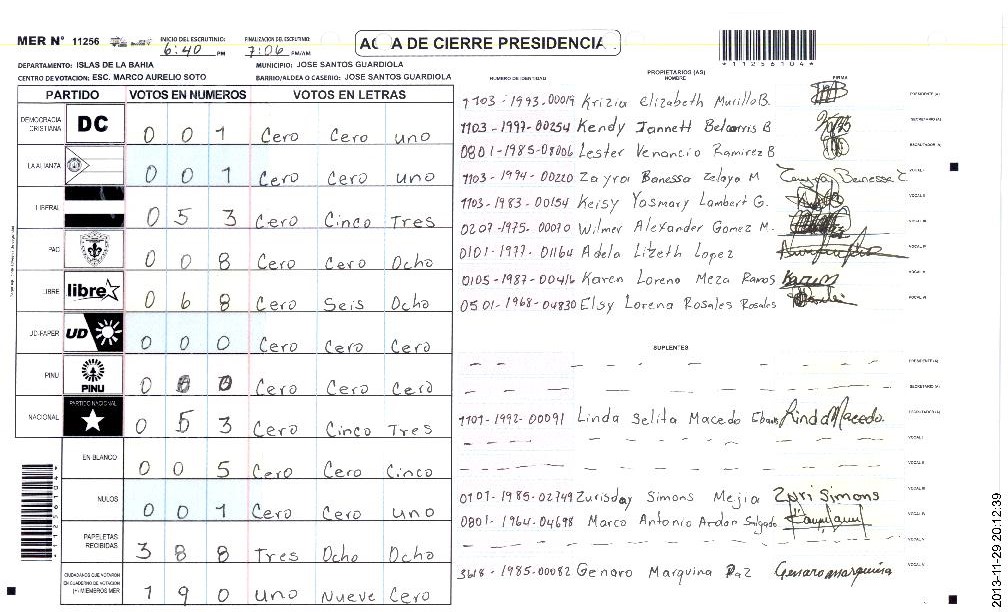 MER N° 11256 INICIO DEL ESCRUTINIO: 6:40 PM FINALIZACION DEL ESCRUTINIO: 7:06 PM/AM
ACTA DE CIERRE PRESIDENCIAL
*11256104*
DEPARTAMENTO: ISLAS DE LA BAHIA MUNICIPIO: JOSE SANTOS GUARDIOLA
CENTRO DE VOTACION: ESC. MARCO AURELIO SOTO BARRIO/ALDEA O CASERIO: JOSE SANTOS GUARDIOLA
PARTIDO VOTOS EN NUMEROS VOTOS EN LETRAS
DEMOCRACIA CRISTIANA DC 0 0 1 Cero Cero uno
LA ALIANZA 0 0 1 Cero Cero uno
LIBERAL 0 5 3 Cero Cinco Tres
PAC 0 0 8 Cero Cero Ocho
LIBRE libre 0 6 8 Cero Seis Ocho
UD-FAPER UD 0 0 0 Cero Cero Cero
PINU PINU 0 0 0 Cero Cero Cero
NACIONAL PARTIDO NACIONAL 0 5 3 Cero Cinco Tres
EN BLANCO 0 0 5 Cero Cero Cinco
NULOS 0 0 1 Cero Cero uno
PAPELETAS RECIBIDAS 3 8 8 Tres Ocho Ocho
CIUDADANOS QUE VOTARON EN CUADERNO DE VOTACION (+) MIEMBROS MER 1 9 0 uno Nueve Cero
PROPIETARIOS (AS)
NUMERO DE IDENTIDAD NOMBRE FIRMA
1103-1993-00019 Krizia Elizabeth Murillo B. PRESIDENTE (A)
1103-1997-00254 Kendy Jannett Belcarris B SECRETARIO (A)
0801-1985-08006 Lester Venancio Ramirez B ESCRUTADOR (A)
1103-1994-00220 Zayra Banessa Zelaya M VOCAL I
1103-1983-00154 Keisy Yosmary Lambert G. VOCAL II
0207-1975-00070 Wilmer Alexander Gomez M. VOCAL III
0101-1977-01164 Adela Lizeth Lopez VOCAL IV
0105-1987-00416 Karen Loreno Meza Ramos Karen VOCAL V
0501-1968-04830 Elsy Lorena Rosales Rosales VOCAL VI
SUPLENTES
PRESIDENTE (A)
SECRETARIO (A)
1101-1992-00091 Linda Selita Macedo Ebanks Linda Macedo. ESCRUTADOR (A)
VOCAL I
VOCAL II
0101-1985-02749 Zurisday Simons Mejia Zuri Simons VOCAL III
0801-1964-04698 Marco Antonio Ardon Salgado VOCAL IV
VOCAL V
3618-1985-00082 Genaro Marquina Paz Genaro marquina VOCAL VI
2013-11-29 20:12:39